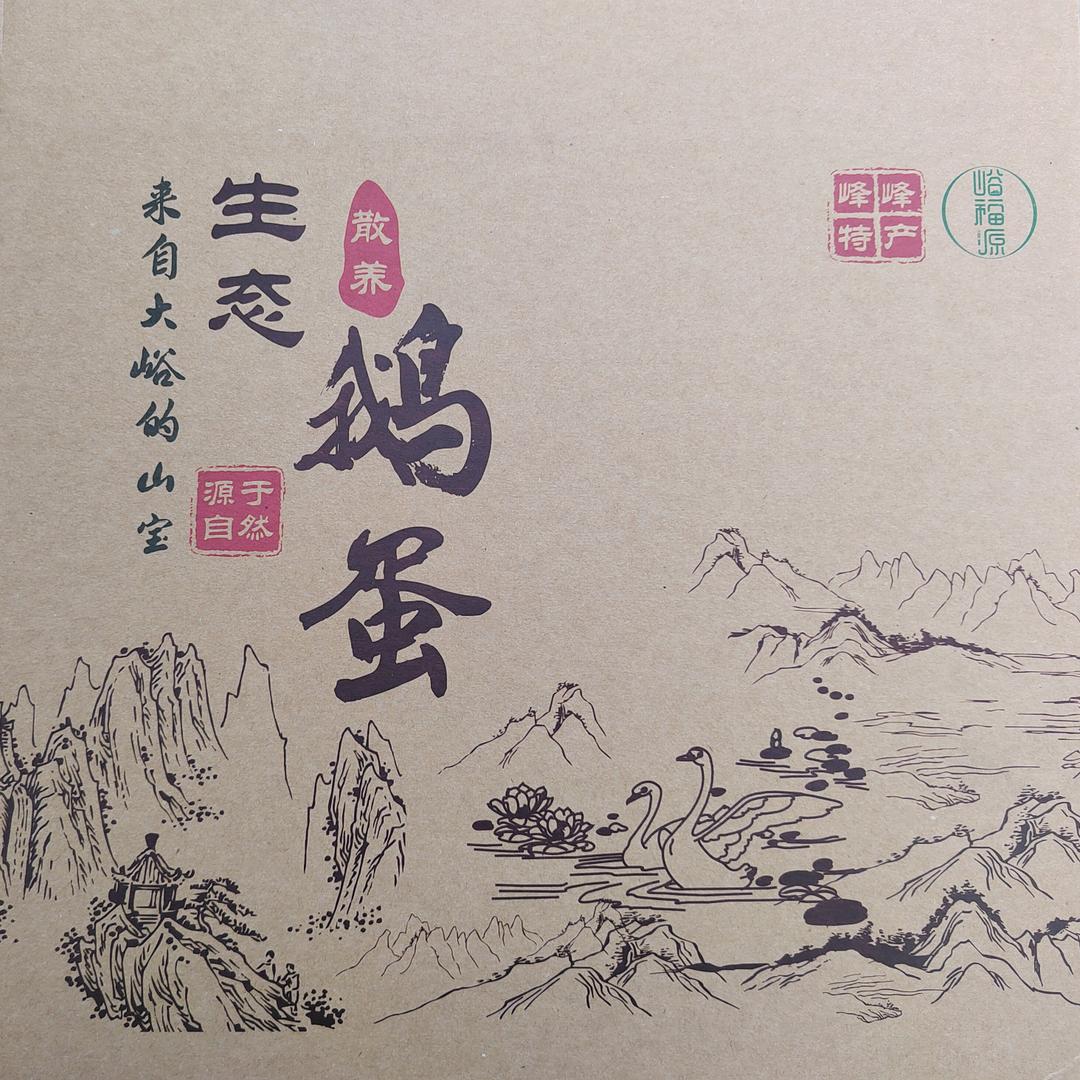 散养
鹅蛋
生态
源于
自然
来自大峪的山宝
峰峰
特产
峪福源